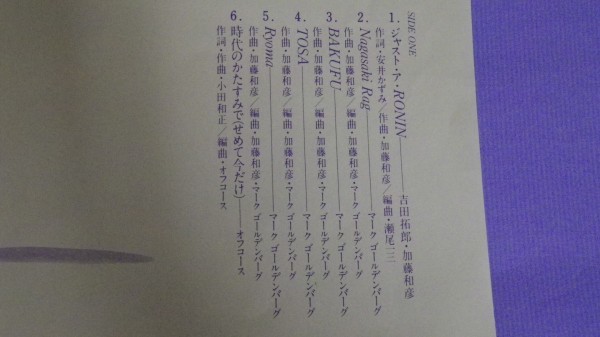 SIDE ONE
1. ジャスト・ア・RONIN——吉田拓郎・加藤和彦
作詞・安井かずみ／作曲・加藤和彦／編曲・瀬尾一三
2. Nagasaki Rag——マーク ゴールデンバーグ
作曲・加藤和彦／編曲・加藤和彦・マーク ゴールデンバーグ
3. BAKUFU——マーク ゴールデンバーグ
作曲・加藤和彦／編曲・加藤和彦・マーク ゴールデンバーグ
4. TOSA——マーク ゴールデンバーグ
作曲・加藤和彦／編曲・加藤和彦・マーク ゴールデンバーグ
5. Ryoma——マーク ゴールデンバーグ
作曲・加藤和彦／編曲・加藤和彦・マーク ゴールデンバーグ
6. 時代のかたすみで(せめて今だけ)——オフコース
作詞・作曲・小田和正／編曲・オフコース